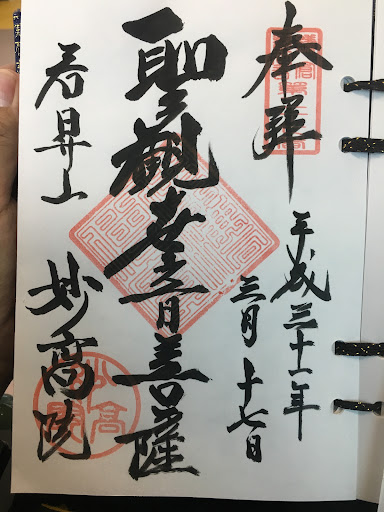 奉拝
平成三十一年
三月十七日
聖観世音菩薩
妙高院
妙高院